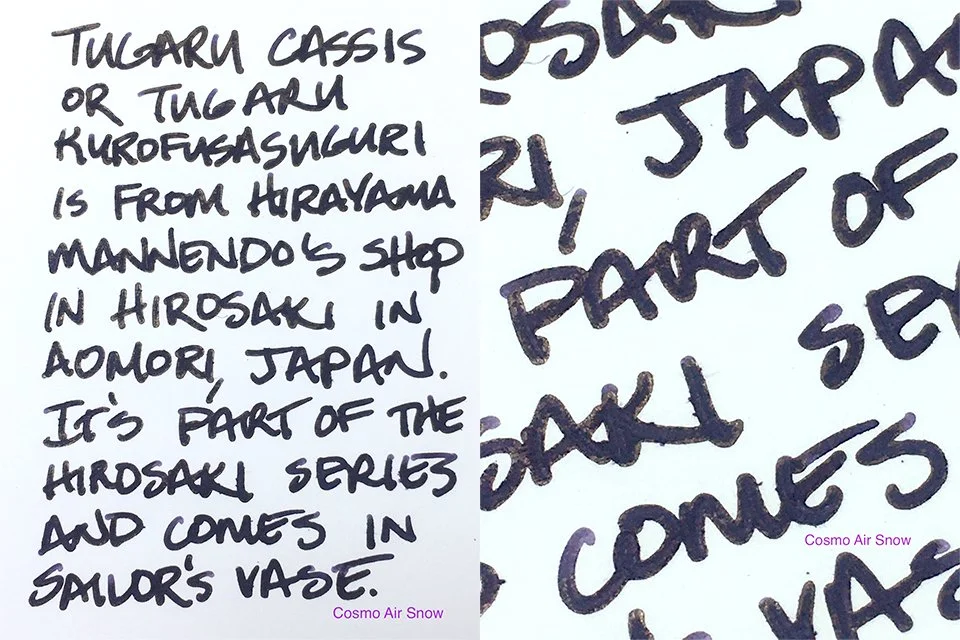 TUGARU CASSIS
OR TUGARU
KUROFUSASUGURI
IS FROM HIRAYAMA
MANNENDO'S SHOP
IN HIROSAKI IN
AOMORI, JAPAN.
IT'S PART OF THE
HIROSAKI SERIES
AND COMES IN
SAILOR'S VASE.
Cosmo Air Snow
OSAK
RI, JAPA
PART OF
SAKI SE
COMES
Cosmo Air Snow
VAS